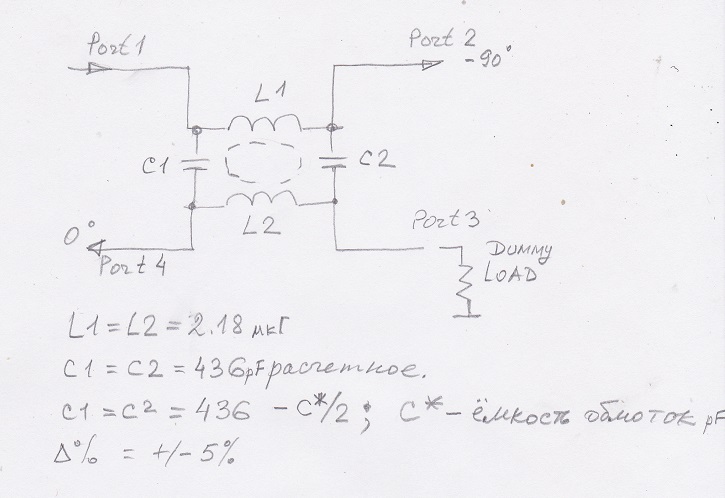 Port 1
Port 2
-90°
L1
C1
C2
L2
0°
Port 4
Port 3
DUMMY
LOAD
L1 = L2 = 2.18 мкГ
C1 = C2 = 436pF расчетное.
C1 = C2 = 436 - C*/2 ; C* - ёмкость обмоток pF
Δ% = +/- 5%